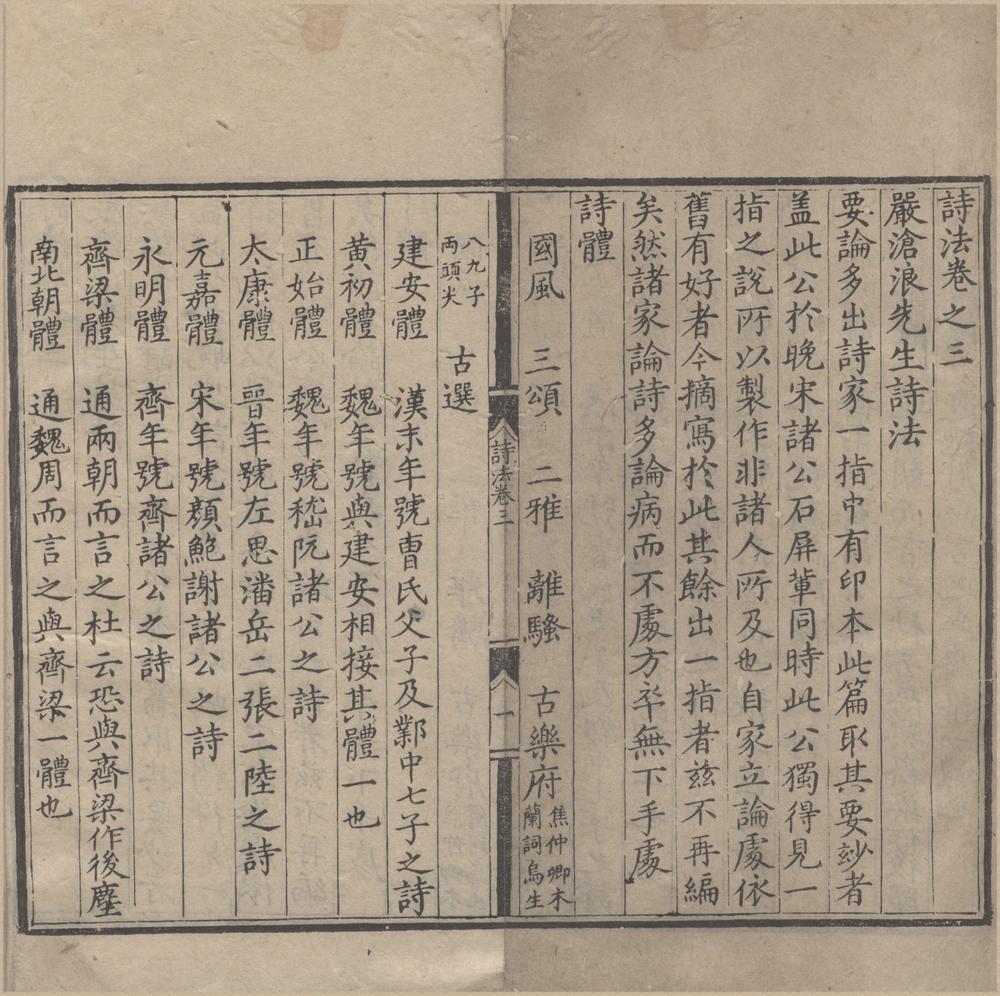 詩法卷之三
嚴滄浪先生詩法
要論多出詩家一指中有印本此篇取其要玅者
盖此公於晚宋諸公石屏軰同時此公獨得見一
指之說所以製作非諸人所及也自家立論䖏依
舊有好者今摘寫於此其餘出一指者兹不再編
矣然諸家論詩多論病而不䖏方卒無下手䖏
詩體
國風 三頌 二雅 離騷 古樂府 焦仲卿木
蘭詞烏生
詩法卷三
一
八九子
兩頭尖 古選
建安體 漢末年號曹氏父子及鄴中七子之詩
黄初體 魏年號與建安相接其體一也
正始體 魏年號嵇阮諸公之詩
太康體 晉年號左思潘岳二張二陸之詩
元嘉體 宋年號顔鮑謝諸公之詩
永明體 齊年號齊諸公之詩
齊梁體 通兩朝而言之杜云恐與齊梁作後塵
南北朝體 通魏周而言之與齊梁一體也